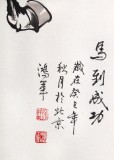 馬到成功
歲在癸巳年
秋月於北京
鴻年